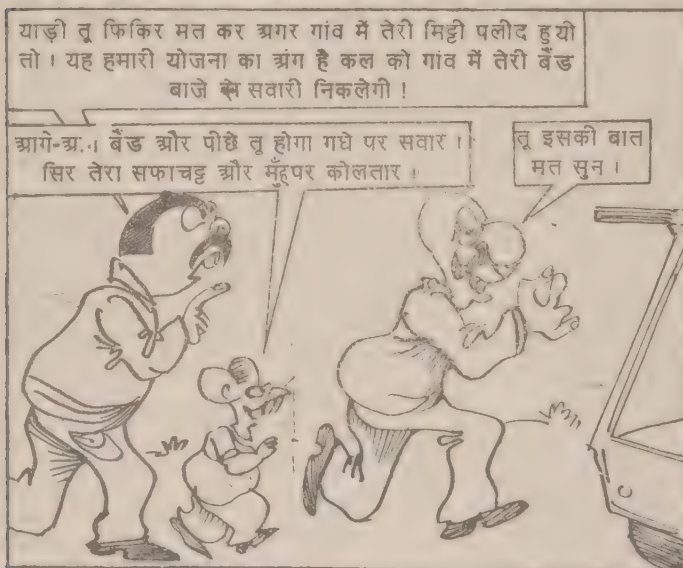 याड़ी तू फिकिर मत कर अगर गांव में तेरी मिट्टी पलीद हुयी
तो । यह हमारी योजना का अंग है कल को गांव में तेरी बैंड
बाजे से सवारी निकलेगी !
आगे-अ..। बैंड और पीछे तू होगा गधे पर सवार ।
सिर तेरा सफाचट्ट और मुँहपर कोलतार ।
तू इसकी बात
मत सुन ।